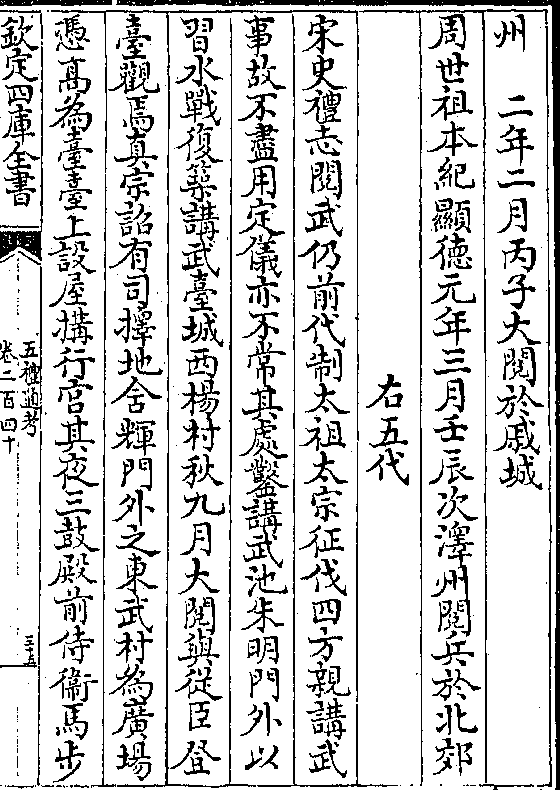 州　二年二月丙子大閱於戚城
周世祖本紀顯徳元年三月壬辰次澤州閱兵於北郊
右五代
宋史禮志閱武仍前代制太祖太宗征伐四方親講武
事故不盡用定儀亦不常其處鑿講武池朱明門外以
習水戰復築講武臺城西楊村秋九月大閱與從臣登
臺觀焉真宗詔有司擇地含輝門外之東武村為廣場
憑髙為臺臺上設屋搆行宫其夜三鼓殿前侍衞馬步
欽定四庫全書
五禮通考
卷二百四十
三十五